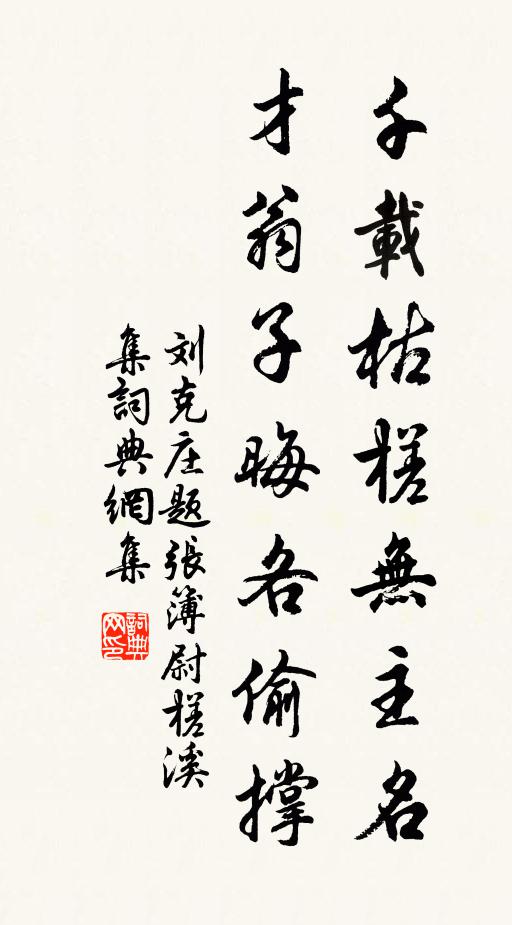 千載枯槎無主名
才翁子晦各偷撐
刘克庄题張簿尉槎溪
集詞典網集
詞典网印